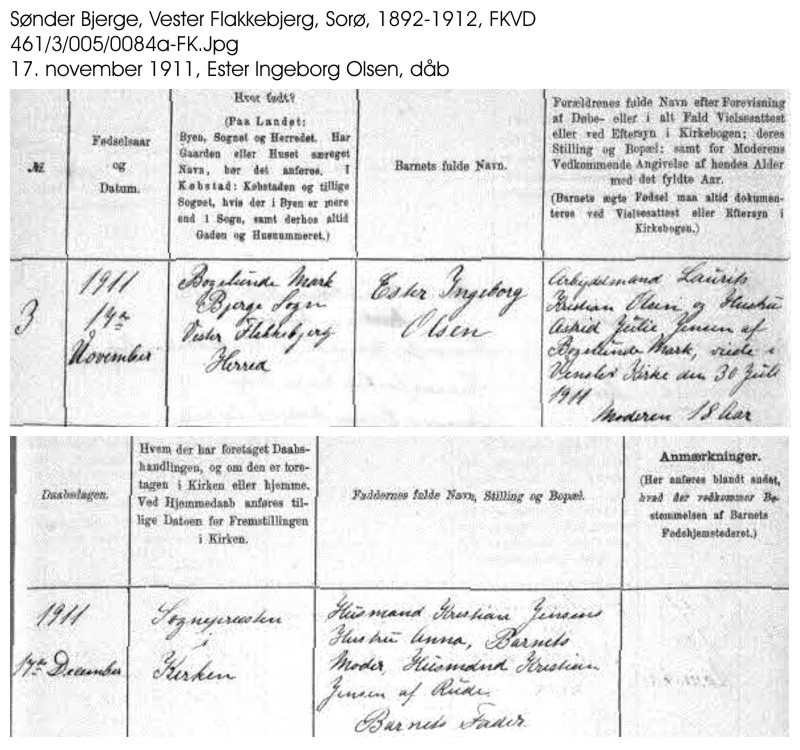 Sønder Bjerge, Vester Flakkebjerg, Sorø, 1892-1912, FKVD
461/3/005/0084a-FK.Jpg
17. november 1911, Ester Ingeborg Olsen, dåb
№
Fødselsaar
og
Datum.
Hvor født?
(Paa Landet:
Byen, Sognet og Herredet. Har
Gaarden eller Huset særeget
Navn, bør det anføres. I
Købstad: Købstaden og tillige
Sognet, hvis der i Byen er mere
end 1 Sogn, samt derhos altid
Gaden og Husnummeret.)
Barnets fulde Navn.
Forældrenes fulde Navn efter Forevisning
af Døbe- eller i alt Fald Vielsesattest
eller ved Eftersyn i Kirkebogen; deres
Stilling og Bopæl; samt for Moderens
Vedkommende Angivelse af hendes Alder
med det fyldte Aar.
(Barnets ægte Fødsel maa altid dokumen-
teres ved Vielsesattest eller Eftersyn i
Kirkebogen.)
3
1911
17de
November
Bøgelunde Mark
Bjerge Sogn
Vester Flakkebjerg
Herred
Ester Ingeborg
Olsen
Arbejdsmand Laurits
Kristian Olsen og Hustru
Astrid Julie Jensen af
Bøgelunde Mark, viede i
Venslev Kirke den 30 Juli
1911
Moderen 18 Aar
Daabsdagen.
Hvem der har foretaget Daabs-
handlingen, og om den er fore-
tagen i Kirken eller hjemme.
Ved Hjemmedaab anføres til-
lige Datoen for Fremstillingen
i Kirken.
Faddernes fulde Navn, Stilling og Bopæl.
Anmærkninger.
(Her anføres blandt andet,
hvad der vedkommer Be-
stemmelsen af Barnets
Fødehjemstedsret.)
1911
17de December
Sognepræsten
i
Kirken
Husmand Kristian Jensens
Hustru Anna, Barnets
Moder, Husmand Kristian
Jensen af Rude.
Barnets Fader.